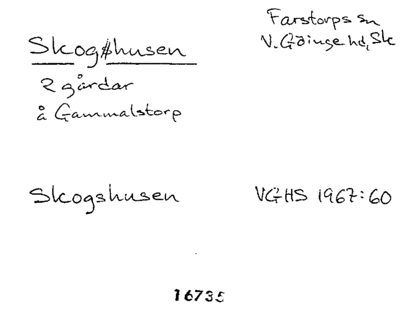 Farstorps sn
V. Göinge hd, Sk
Skogshusen
2 gårdar
å Gammalstorp
Skogshusen VGHS 1967:60
16735